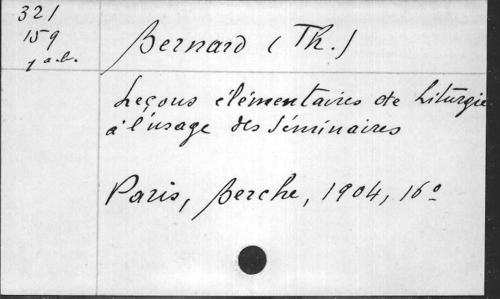 321
159
Bernard (Th.)
Leçons élémentaires de Liturgie
à l'usage des Séminaires
Paris, Berche, 1904, 16º